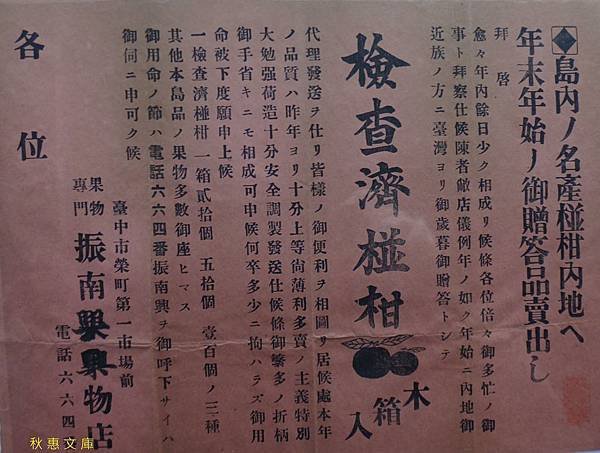 島內ノ名產椪柑內地へ
年末年始ノ御贈答品賣出し
拜啓
愈々年內餘日少ク相成リ候條各位倍々御多忙ノ御
事ト拜察仕候陳者敝店儀例年ノ如ク年始ニ內地御
近族ノ方ニ臺灣ヨリ御歲暮御贈答トシテ
檢查濟椪柑
木箱入
代理發送ヲ仕リ皆樣ノ御便利ヲ相圖リ居候處本年
ノ品質ハ昨年ヨリ十分上等尙薄利多賣ノ主義特別
大勉强荷造十分安全調製發送仕候條御繁多ノ折柄
御手省キニモ相成可申候何卒多少ニ拘ハラズ御用
命被下度願申上候
一檢查濟椪柑 一箱貳拾個 五拾個 壹百個ノ三種
其他本島品ノ果物多數御座ヒマス
御用命ノ節ハ電話六六四番振南興ヲ御呼下サイハ
御伺ニ申可ク候
臺中市榮町第一市場前
果物專門 振南興果物店
電話六六四
各位
秋惠文庫